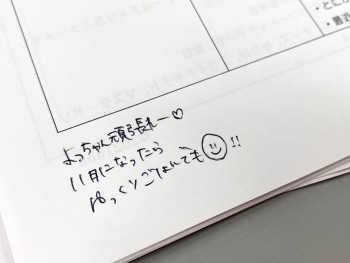 ・とにか
・最近
よっちゃん頑張れー♡
11月になったら
ゆっくりごはんでも☺!!